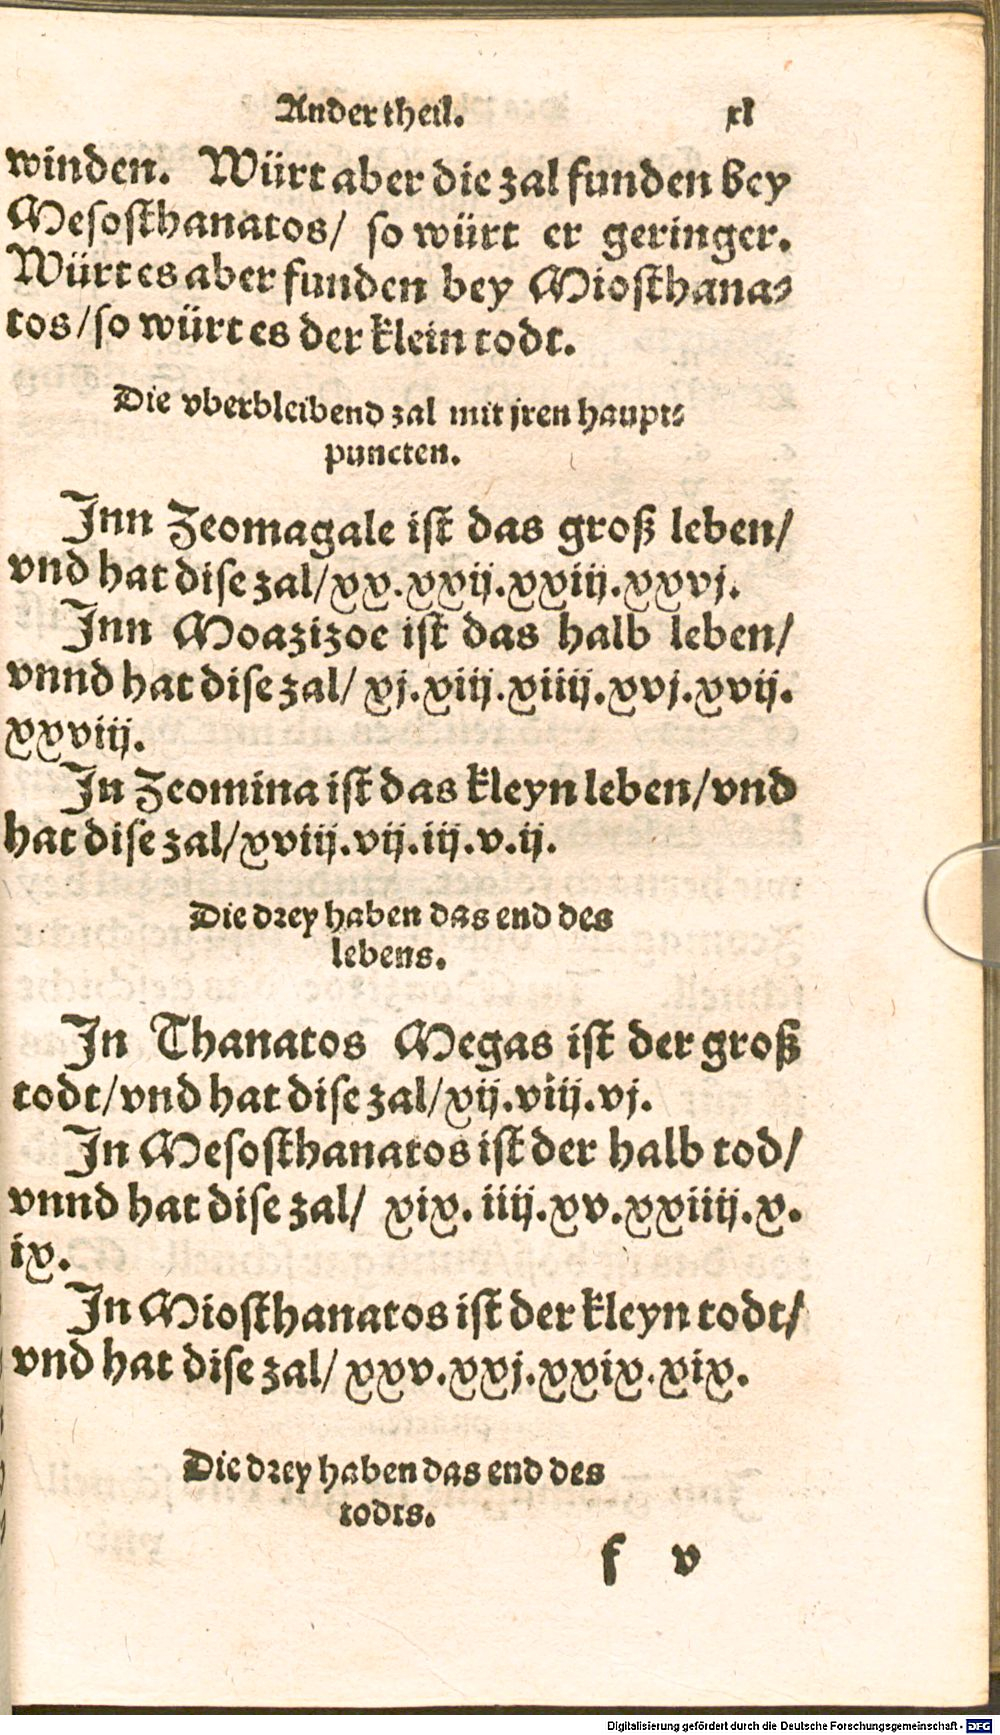 Ander theil. xl
winden. Würt aber die zal funden bey
Mesosthanatos/ so würt er geringer.
Würt es aber funden bey Miosthana-
tos/so würt es der klein todt.
Die vberbleibend zal mit jren haupt-
puncten.
Inn Zeomagale ist das groß leben/
vnd hat dise zal/xx.xxij.xxiij.xxvj.
Inn Moazizoe ist das halb leben/
vnnd hat dise zal/ xj.xiij.xiiij.xvj.xvij.
xxviij.
In Zeomina ist das kleyn leben/vnd
hat dise zal/xviij.vij.iij.v.ij.
Die drey haben das end des
lebens.
In Thanatos Megas ist der groß
todt/vnd hat dise zal/xij.viij.vj.
In Mesosthanatos ist der halb tod/
vnnd hat dise zal/ xix.iiij.xv.xxiiij.x.
ix.
In Miosthanatos ist der kleyn todt/
vnd hat dise zal/ xxv.xxj.xxix.xix.
Die drey haben das end des
todts.
f v
Digitalisierung gefördert durch die Deutsche Forschungsgemeinschaft - DFG